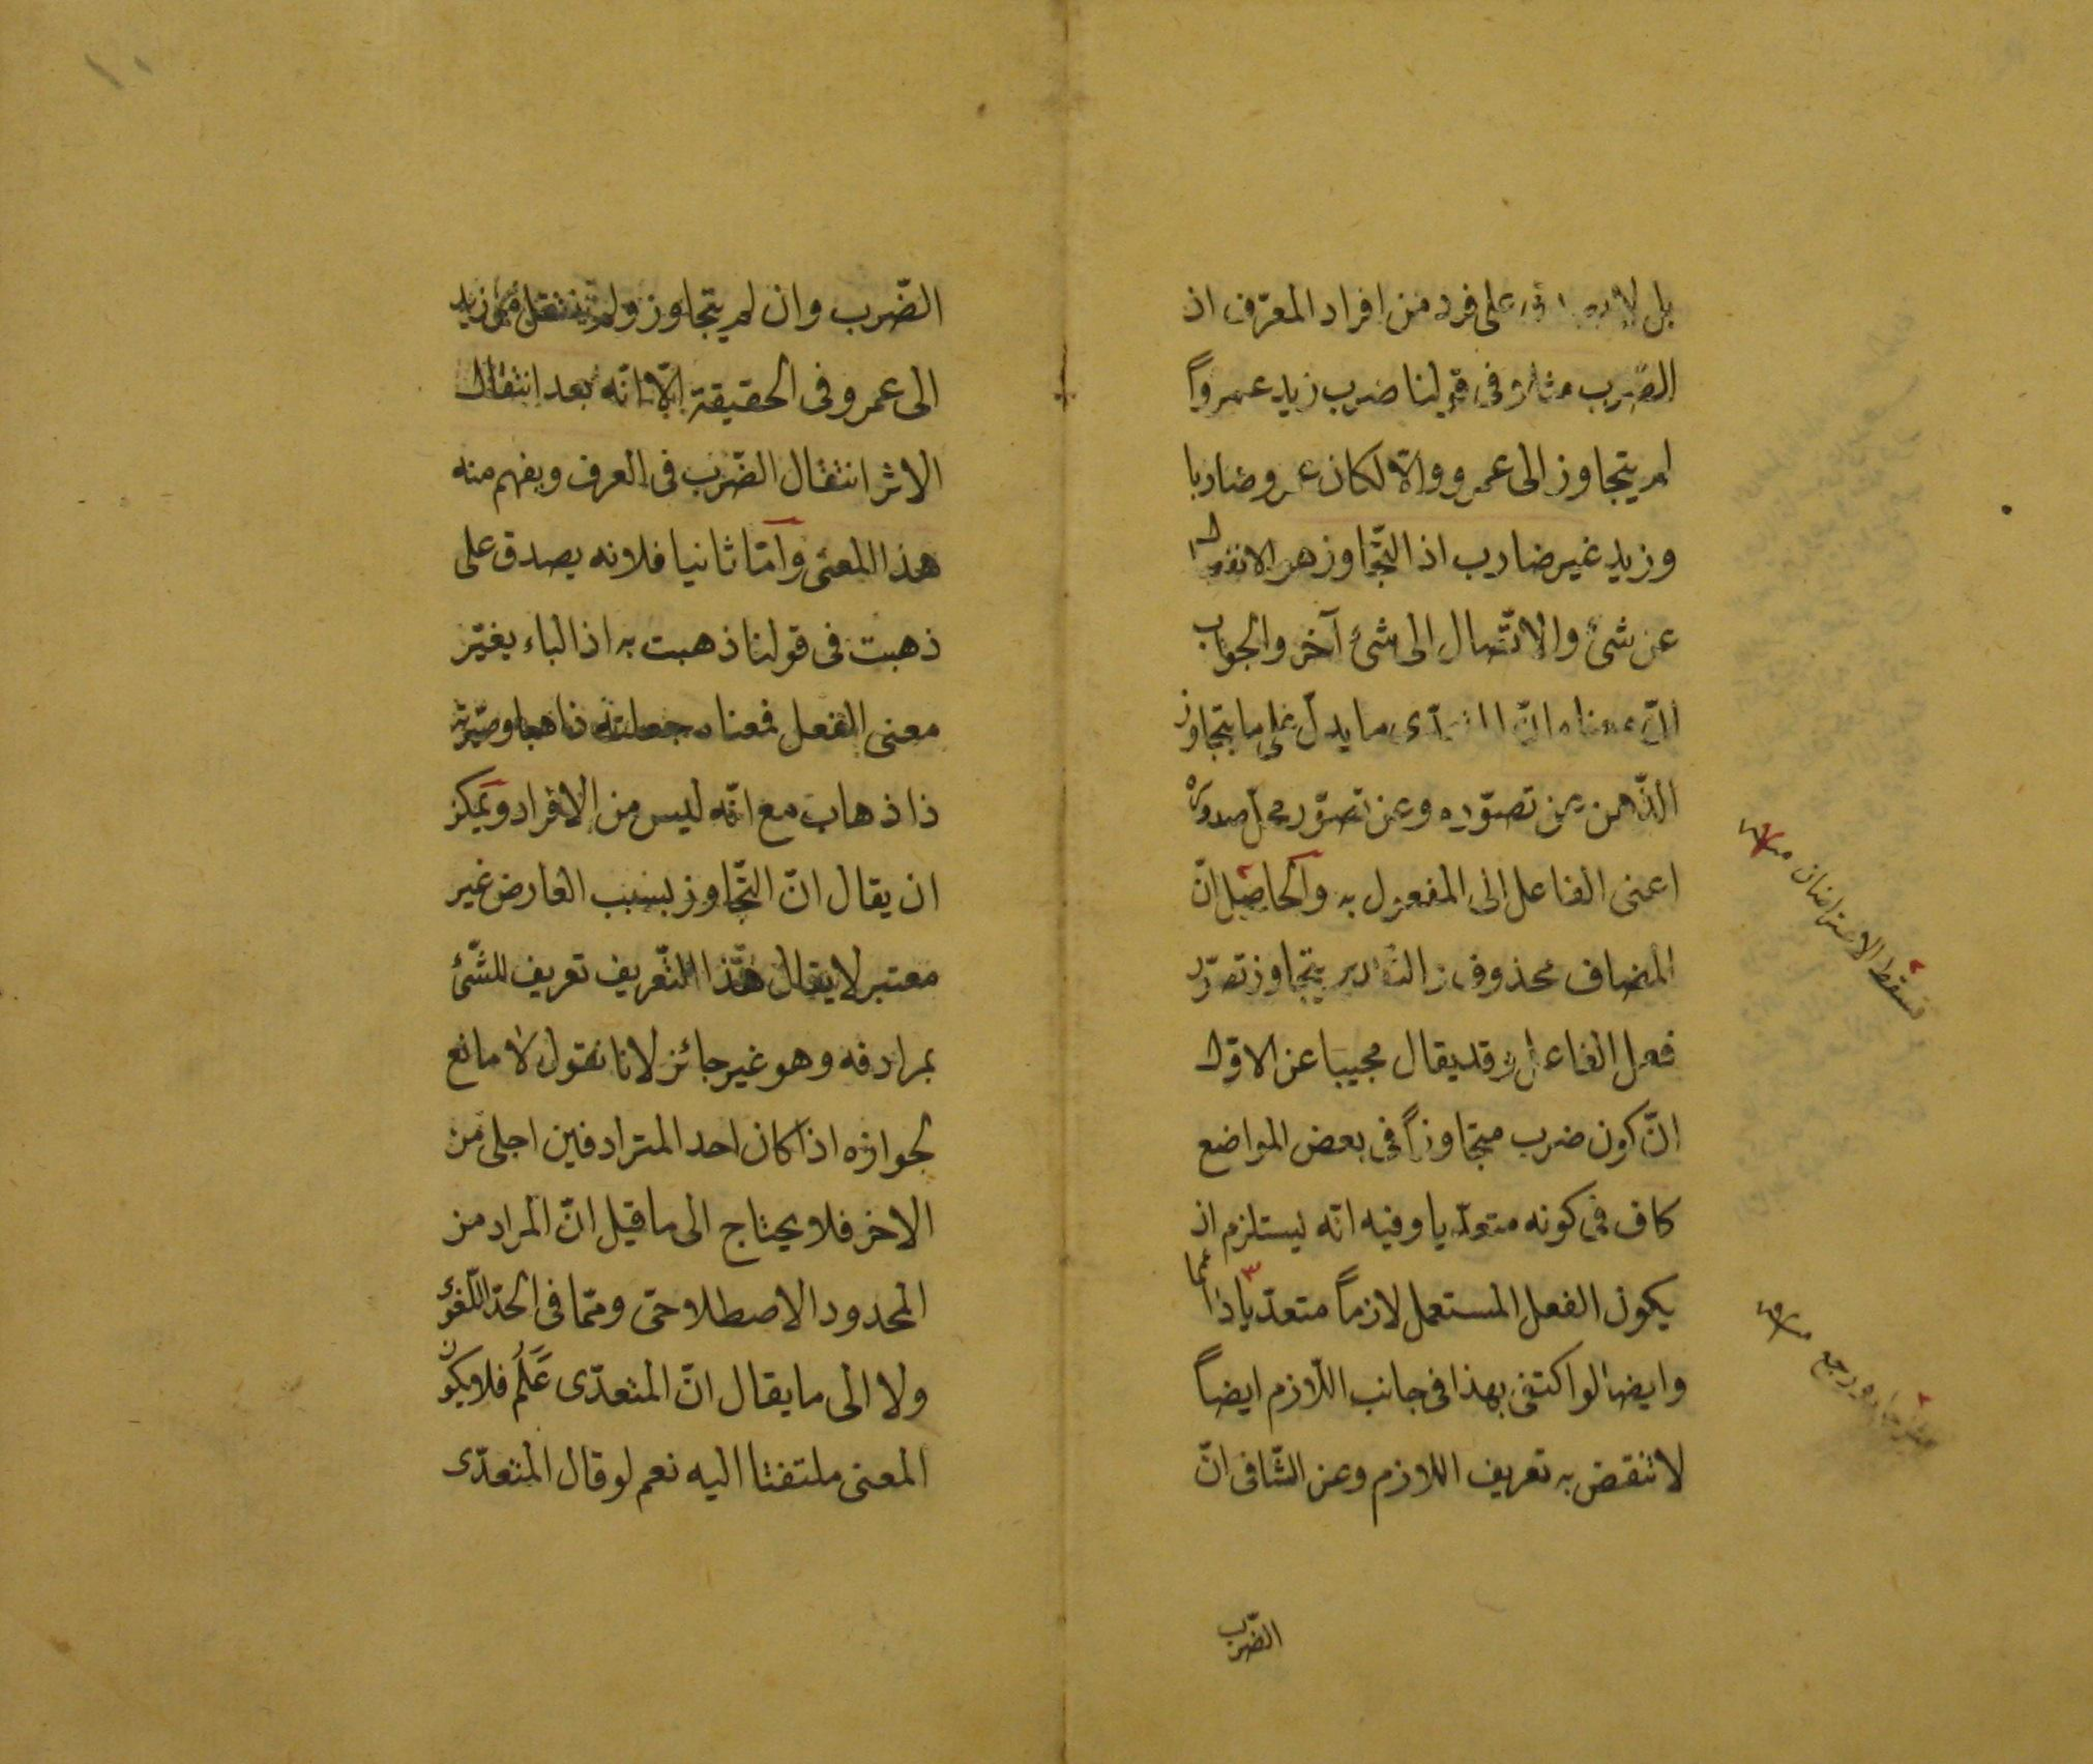 بل لا على فرد من افراد المعرّف اذ
الضّرب مثلا فى قولنا ضرب زيد عمرواً
لم يتجاوز الى عمرو والّا لكان عمرو ضاربا
وزيد غير ضارب اذ التّجاوز هو الانفصال
عن شئ والاتّصال الى شئ آخر والجواب
انّ معناه انّ المتعدّى ما يدلّ على ما يتجاوز
الذّهن من تصوّره وعن تصوّر محلّ صدوره
اعنى الفاعل الى المفعول به والحاصل انّ
المضاف محذوف والتقدير يتجاوز تصوّر
فعل الفاعل وقد يقال مجيبا عن الاوّل
انّ كون ضرب متجاوزاً فى بعض المواضع
كاف فى كونه متعدّيا وفيه انّه يستلزم ان
يكون الفعل المستعمل لازماً متعدّيا دائما
وايضا لو اكتفى بهذا فى جانب اللّازم ايضاً
لانتقض به تعريف اللازم وعن الثّانى انّ
الضّرب
فسقط الاعتراضان منه
ورجع منه
١٠
الضّرب وان لم يتجاوز ولم ينتقل من زيد
الى عمرو فى الحقيقة الّا انّه بعد انتقال
الاثر انتقال الضّرب فى العرف ويفهم منه
هذا المعنى وامّا ثانيا فلانه يصدق على
ذهبت فى قولنا ذهبت به اذ الباء يغيّر
معنى الفعل فمعناه جعلته ذاهبا وصيّرته
ذا ذهاب مع انّه ليس من الافراد ويمكن
ان يقال انّ التّجاوز بسبب العارض غير
معتبر لا يقال هذا التّعريف تعريف للشّئ
بمرادفه وهو غير جائز لانا نقول لا مانع
لجوازه اذا كان احد المترادفين اجلى من
الاخر فلا يحتاج الى ما قيل انّ المراد من
المحدود الاصطلاحى وممّا فى الحدّ اللّغوى
ولا الى ما يقال انّ المتعدّى عَلَمٌ فلا يكون
المعنى ملتفتا اليه نعم لو قال المتعدّى